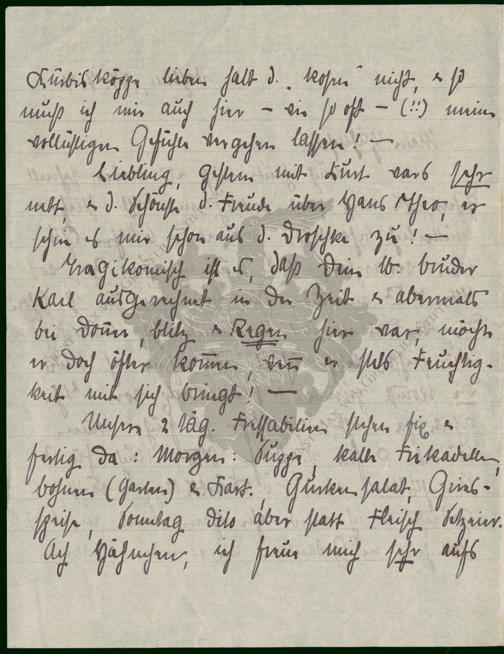 Kürbisköppe lieben halt d. "kosen" nicht, & so
muß ich mir auch hier – wie so oft – (!!) meine
wollüstigen Gefühle vergehen lassen! –
Liebling, gestern mit Kurt wars sehr
nett, & d. Schönste d. Freude über Hans Theo, er
schrie es mir schon aus d. Droschke zu! –
Tragikomisch ist es, daß Dein lb. bruder
Karl ausgerechnet in der Zeit & abermals
bei Donner, blitz & Regen hier war, möchte
er doch öfter kommen, wenn er stets Feuchtig-
keit mit sich bringt! –
Unsere 2 täg. Fressabilien stehen fix &
fertig da: Morgen: Suppe, kalte Frikadellen,
bohnen (Garten) & Kart., Gurkensalat, Gries-
speise, Sonntag dito aber statt Fleisch Setzeier.
Ach Hähnchen, ich freue mich sehr aufs